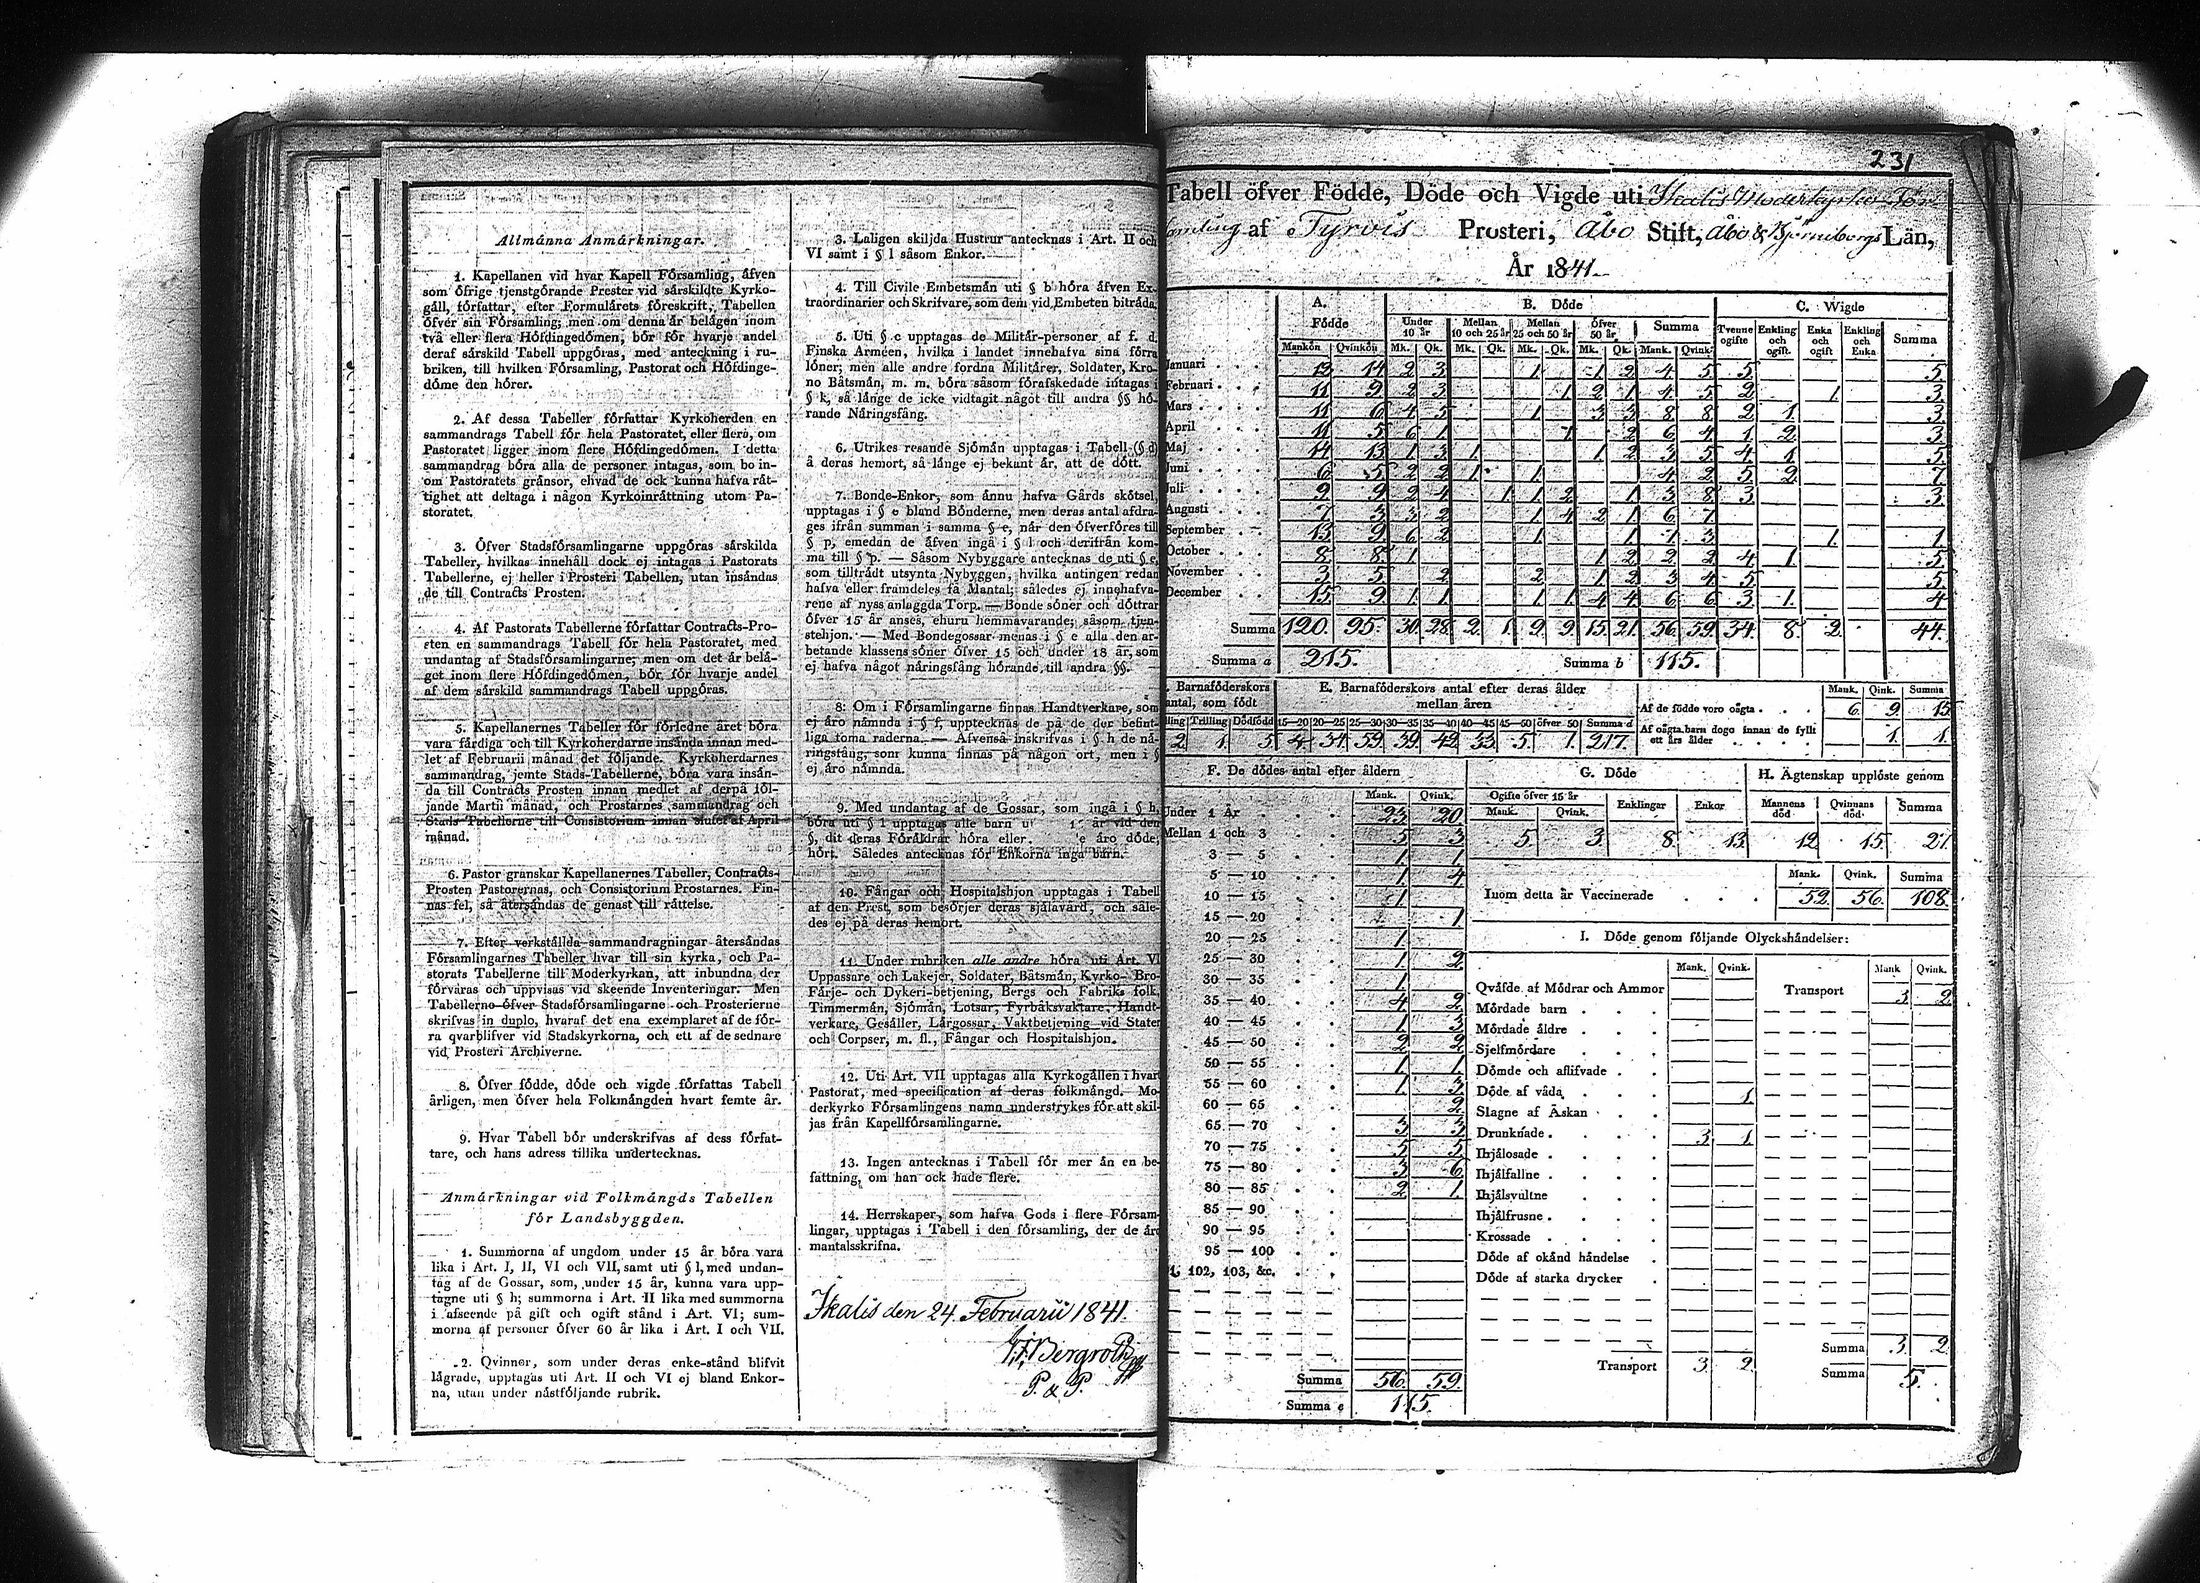 Allmänna Anmärkningar.
1. Kapellanen vid hvar Kapell Församling, äfven
som öfrige tjenstgörande Prester vid särskildte Kyrko-
gäll, författar, efter Formulärets föreskrift, Tabellen
öfver sin Församling; men om denna är belägen inom
två eller flera Höfdingedömen, bör för hvarje andel
deraf särskild Tabell uppgöras, med anteckning i ru-
briken, till hvilken Församling, Pastorat och Höfdinge-
döme den hörer.
2. Af dessa Tabeller författar Kyrkoherden en
sammandrags Tabell för hela Pastoratet, eller flera, om
Pastoratet ligger inom flere Höfdingedömen. I detta
sammandrag böra alla de personer intagas, som bo in-
om Pastoratets gränsor, ehvad de ock kunna hafva rät-
tighet att deltaga i någon Kyrkoinrättning utom Pa-
storatet.
3. Öfver Stadsförsamlingarne uppgöras särskilda
Tabeller, hvilkas innehåll dock ej intagas i Pastorats
Tabellerne, ej heller i Prosteri Tabellen, utan insändas
de till Contracts Prosten.
4. Af Pastorats Tabellerne författar Contracts-Pro-
sten en sammandrags Tabell för hela Pastoratet, med
undantag af Stadsförsamlingarne; men om det är belä-
get inom flere Höfdingedömen, bör för hvarje andel
af dem särskild sammandrags Tabell uppgöras.
5. Kapellanernes Tabeller för förledne året böra
vara färdiga och till Kyrkoherdarne insända innan med-
let af Februarii månad det följande. Kyrkoherdarnes
sammandrag, jemte Stads-Tabellerne, böra vara insän-
da till Contracts Prosten innan medlet af derpå föl-
jande Martii månad, och Prostarnes sammandrag och
Stads Tabellerne till Consistorium innan slutet af April
månad.
6. Pastor granskar Kapellanernes Tabeller, Contracts-
Prosten Pastorernas, och Consistorium Prostarnes. Fin-
nas fel, så återsändas de genast till rättelse.
7. Efter verkställda sammandragningar återsändas
Församlingarnes Tabeller hvar till sin kyrka, och Pa-
storats Tabellerne till Moderkyrkan, att inbundna der
förvaras och uppvisas vid skeende Inventeringar. Men
Tabellerne öfver Stadsförsamlingarne och Prosterierne
skrifvas in duplo, hvaraf det ena exemplaret af de för-
ra qvarblifver vid Stadskyrkorna, och ett af de sednare
vid Prosteri Archiverne.
8. Öfver födde, döde och vigde författas Tabell
årligen, men öfver hela Folkmängden hvart femte år.
9. Hvar Tabell bör underskrifvas af dess förfat-
tare, och hans adress tillika undertecknas.
Anmärkningar vid Folkmängds Tabellen
för Landsbyggden.
1. Summorna af ungdom under 15 år böra vara
lika i Art. I, II, VI och VII, samt uti § l, med undan-
tag af de Gossar, som, under 15 år, kunna vara upp-
tagne uti § h; summorna i Art. II lika med summorna
i afseende på gift och ogift stånd i Art. VI; sum-
morna af personer öfver 60 år lika i Art. I och VII.
2. Qvinnor, som under deras enke-stånd blifvit
lägrade, upptagas uti Art. II och VI ej bland Enkor-
na, utan under nästföljande rubrik.
3. Laligen skiljda Hustrur antecknas i Art. II och
VI samt i § l såsom Enkor.
4. Till Civile Embetsmän uti § b höra äfven Ex-
traordinarier och Skrifvare, som dem vid Embeten biträda.
5. Uti § c upptagas de Militär-personer af f. d.
Finska Arméen, hvilka i landet innehafva sina förra
löner; men alle andre fordna Militärer, Soldater, Kro-
no Båtsmän, m. m. böra såsom förafskedade intagas i
§ k, så länge de icke vidtagit något till andra §§ hö-
rande Näringsfång.
6. Utrikes resande Sjömän upptagas i Tabell (§ d)
å deras hemort, så länge ej bekant är, att de dött.
7. Bonde-Enkor, som ännu hafva Gårds skötsel,
upptagas i § e bland Bönderne, men deras antal afdra-
ges ifrån summan i samma § e, när den öfverföres till
§ p, emedan de äfven ingå i § l och derifrån kom-
ma till § p. — Såsom Nybyggare antecknas de uti § e,
som tillträdt utsynta Nybyggen, hvilka antingen redan
hafva eller framdeles få Mantal; således ej innehafva-
rene af nyss anlaggda Torp. — Bonde söner och döttrar
öfver 15 år anses, ehuru hemmavarande, såsom tjen-
stehjon. — Med Bondegossar menas i § e alla den ar-
betande klassens söner öfver 15 och under 18 år, som
ej hafva något näringsfång hörande till andra §§.
8: Om i Församlingarne finnas Handtverkare, som
ej äro nämnda i § f, upptecknas de på de der befint-
liga toma raderna. — Äfvenså inskrifvas i § h de nä-
ringsfång, som kunna finnas på någon ort, men i §
ej äro nämnda.
9. Med undantag af de Gossar, som ingå i § h,
böra uti § l upptagas alle barn u 1 år vid den
§, dit deras Föräldrar höra eller, e äro döde,
hört. Således antecknas för Enkorna inga barn.
10. Fångar och Hospitalshjon upptagas i Tabell
af den Prest, som besörjer deras själavård, och såle-
des ej på deras hemort.
11. Under rubriken alle andre höra uti Art. VI
Uppassare och Lakejer, Soldater, Båtsmän, Kyrko- Bro-
Färje- och Dykeri-betjening, Bergs och Fabriks folk,
Timmermän, Sjömän, Lotsar, Fyrbåksvaktare, Handt-
verkare, Gesäller, Lärgossar, Vaktbetjening vid Stater
och Corpser, m. fl., Fångar och Hospitalshjon.
12. Uti Art. VII upptagas alla Kyrkogällen i hvart
Pastorat, med specification af deras folkmängd. Mo-
derkyrko Församlingens namn understrykes för att skil-
jas från Kapellförsamlingarne.
13. Ingen antecknas i Tabell för mer än en be-
fattning, om han ock hade flere.
14. Herrskaper, som hafva Gods i flere Försam-
lingar, upptagas i Tabell i den församling, der de äro
mantalsskrifna.
Ikalis den 24. Februarii 1841.
Bergroth
P. & P.
231
Tabell öfver Födde, Döde och Vigde uti Ikalis Moderkyrko För-
samling af Tyrvis Prosteri, Åbo Stift, Åbo & Björneborgs Län,
År 1841.
A. Födde B. Döde C. Wigde
Under 10 år Mellan 10 och 25 år Mellan 25 och 50 år Öfver 50 år Summa Tvenne ogifte Enkling och ogift. Enka och ogift Enkling och Enka Summa
Mankön Qvinkön Mk. Qk. Mk. Qk. Mk. Qk. Mk. Qk. Mank. Qvink.
Januari 13 14 2 3 1 1 2 4 5 5 5
Februari 11 9 2 3 1 2 1 4 5 2 1 3
Mars 11 6 4 5 1 3 3 8 8 2 1 3
April 11 5 6 1 1 2 6 4 1 2 3
Maj 14 13 1 3 1 1 2 3 5 4 1 5
Juni 6 5 2 2 1 1 4 2 5 2 7
Juli 9 9 2 4 1 1 2 1 3 8 3 3
Augusti 7 3 3 2 1 4 2 1 6 7
September 13 9 6 2 1 1 1 3 1 1
October 8 8 1 1 2 2 2 4 1 5
November 3 5 2 2 1 2 3 4 5 5
December 15 9 1 1 1 1 4 4 6 6 3 1 4
Summa 120. 95. 30. 28. 2. 1. 9. 9. 15. 21. 56. 59. 34. 8. 2. 44.
Summa a 215. Summa b 115.
Barnaföderskors antal, som födt
lling Trilling Dödfödd
2. 1. 5.
E. Barnaföderskors antal efter deras ålder mellan åren
15—20 20—25 25—30 30—35 35—40 40—45 45—50 öfver 50 Summa d
4. 34. 59. 39. 42. 33. 5. 1. 217.
Mank. Qink. Summa
Af de födde voro oägta 6. 9. 15.
Af oägta barn dogo innan de fyllt ett års ålder 1. 1.
F. De dödes antal efter åldern
Mank. Qvink.
Under 1 År 23 20
Mellan 1 och 3 5 3
3 — 5 1 1
5 — 10 1 4
10 — 15 1
15 — 20 1
20 — 25 1
25 — 30 1 2
30 — 35 1
35 — 40 4 2
40 — 45 1 3
45 — 50 2 2
50 — 55 1 1
55 — 60 1 3
60 — 65 2
65 — 70 3 3
70 — 75 5 5
75 — 80 3 6
80 — 85 2 1
85 — 90
90 — 95
95 — 100
102, 103, &c.
Summa 56. 59.
Summa e 115.
G. Döde
Ogifte öfver 15 år Enklingar Enkor
Mank. Qvink.
5. 3. 8. 13.
H. Ägtenskap upplöste genom
Mannens död Qvinnans död Summa
12 15. 21.
Mank. Qvink. Summa
Inom detta år Vaccinerade 52. 56. 108.
I. Döde genom följande Olyckshändelser:
Mank. Qvink. Mank Qvink.
Qväfde af Mödrar och Ammor
Transport 3. 2.
Mördade barn
Mördade äldre
Sjelfmördare
Dömde och aflifvade
Döde af våda 1
Slagne af Åskan
Drunknade 3. 1.
Ihjälosade
Ihjälfallne
Ihjälsvultne
Ihjälfrusne
Krossade
Döde af okänd händelse
Döde af starka drycker
Summa 3. 2.
Transport 3. 2.
Summa 5.